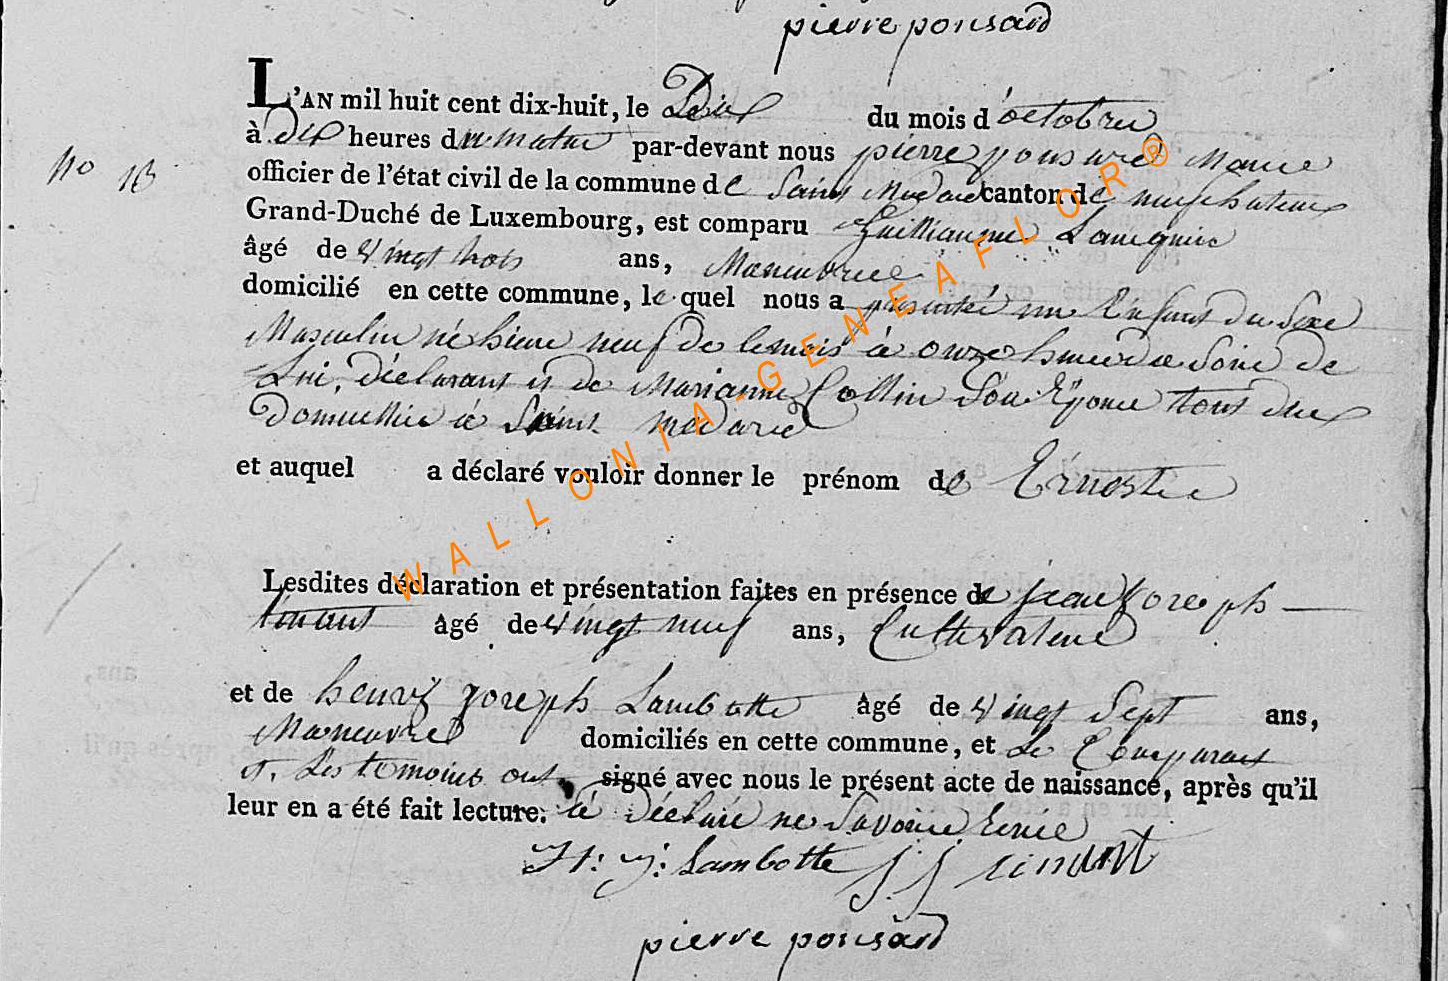 pierre ponsard
L'AN mil huit cent dix-huit, le Dix du mois d'octobre
à Dix heures du matin par-devant nous pierre ponsard Maire
no 18
officier de l'état civil de la commune de Saint Medard canton de neufchateaux
Grand-Duché de Luxembourg, est comparu Guilliaume
âgé de vingt trois ans, Maneuvree
domicilié en cette commune, le quel nous a presenté un Enfant du Sexe
Masculin né hiere neuf de le mois à onze heure du Soire de
Lui, déclarant et de Marianne Collin Son Epouse tous deux
Domicillié à Saint medard
et auquel a déclaré vouloir donner le prénom de Erneste
Lesdites déclaration et présentation faites en présence de jean joseph
tinant âgé de vingt neuf ans, Cultivateur
et de henry joseph Lambotte âgé de vingt Sept ans,
Maneuvre domiciliés en cette commune, et Le Comparant
et Les temoins ont signé avec nous le présent acte de naissance, après qu'il
leur en a été fait lecture. à Déclaré ne Savoire
H: j: Lambotte J J tinant
pierre ponsard
WALLONIA-GENEAFLOR®